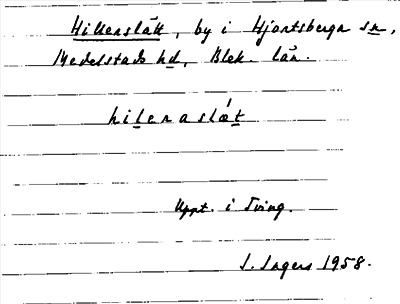 Hillerslätt, by i Hjortsberga sn,
Medelstads hd, Blek. län.
hileraslǽt
Uppt. i Tving.
S. Lagers 1958.